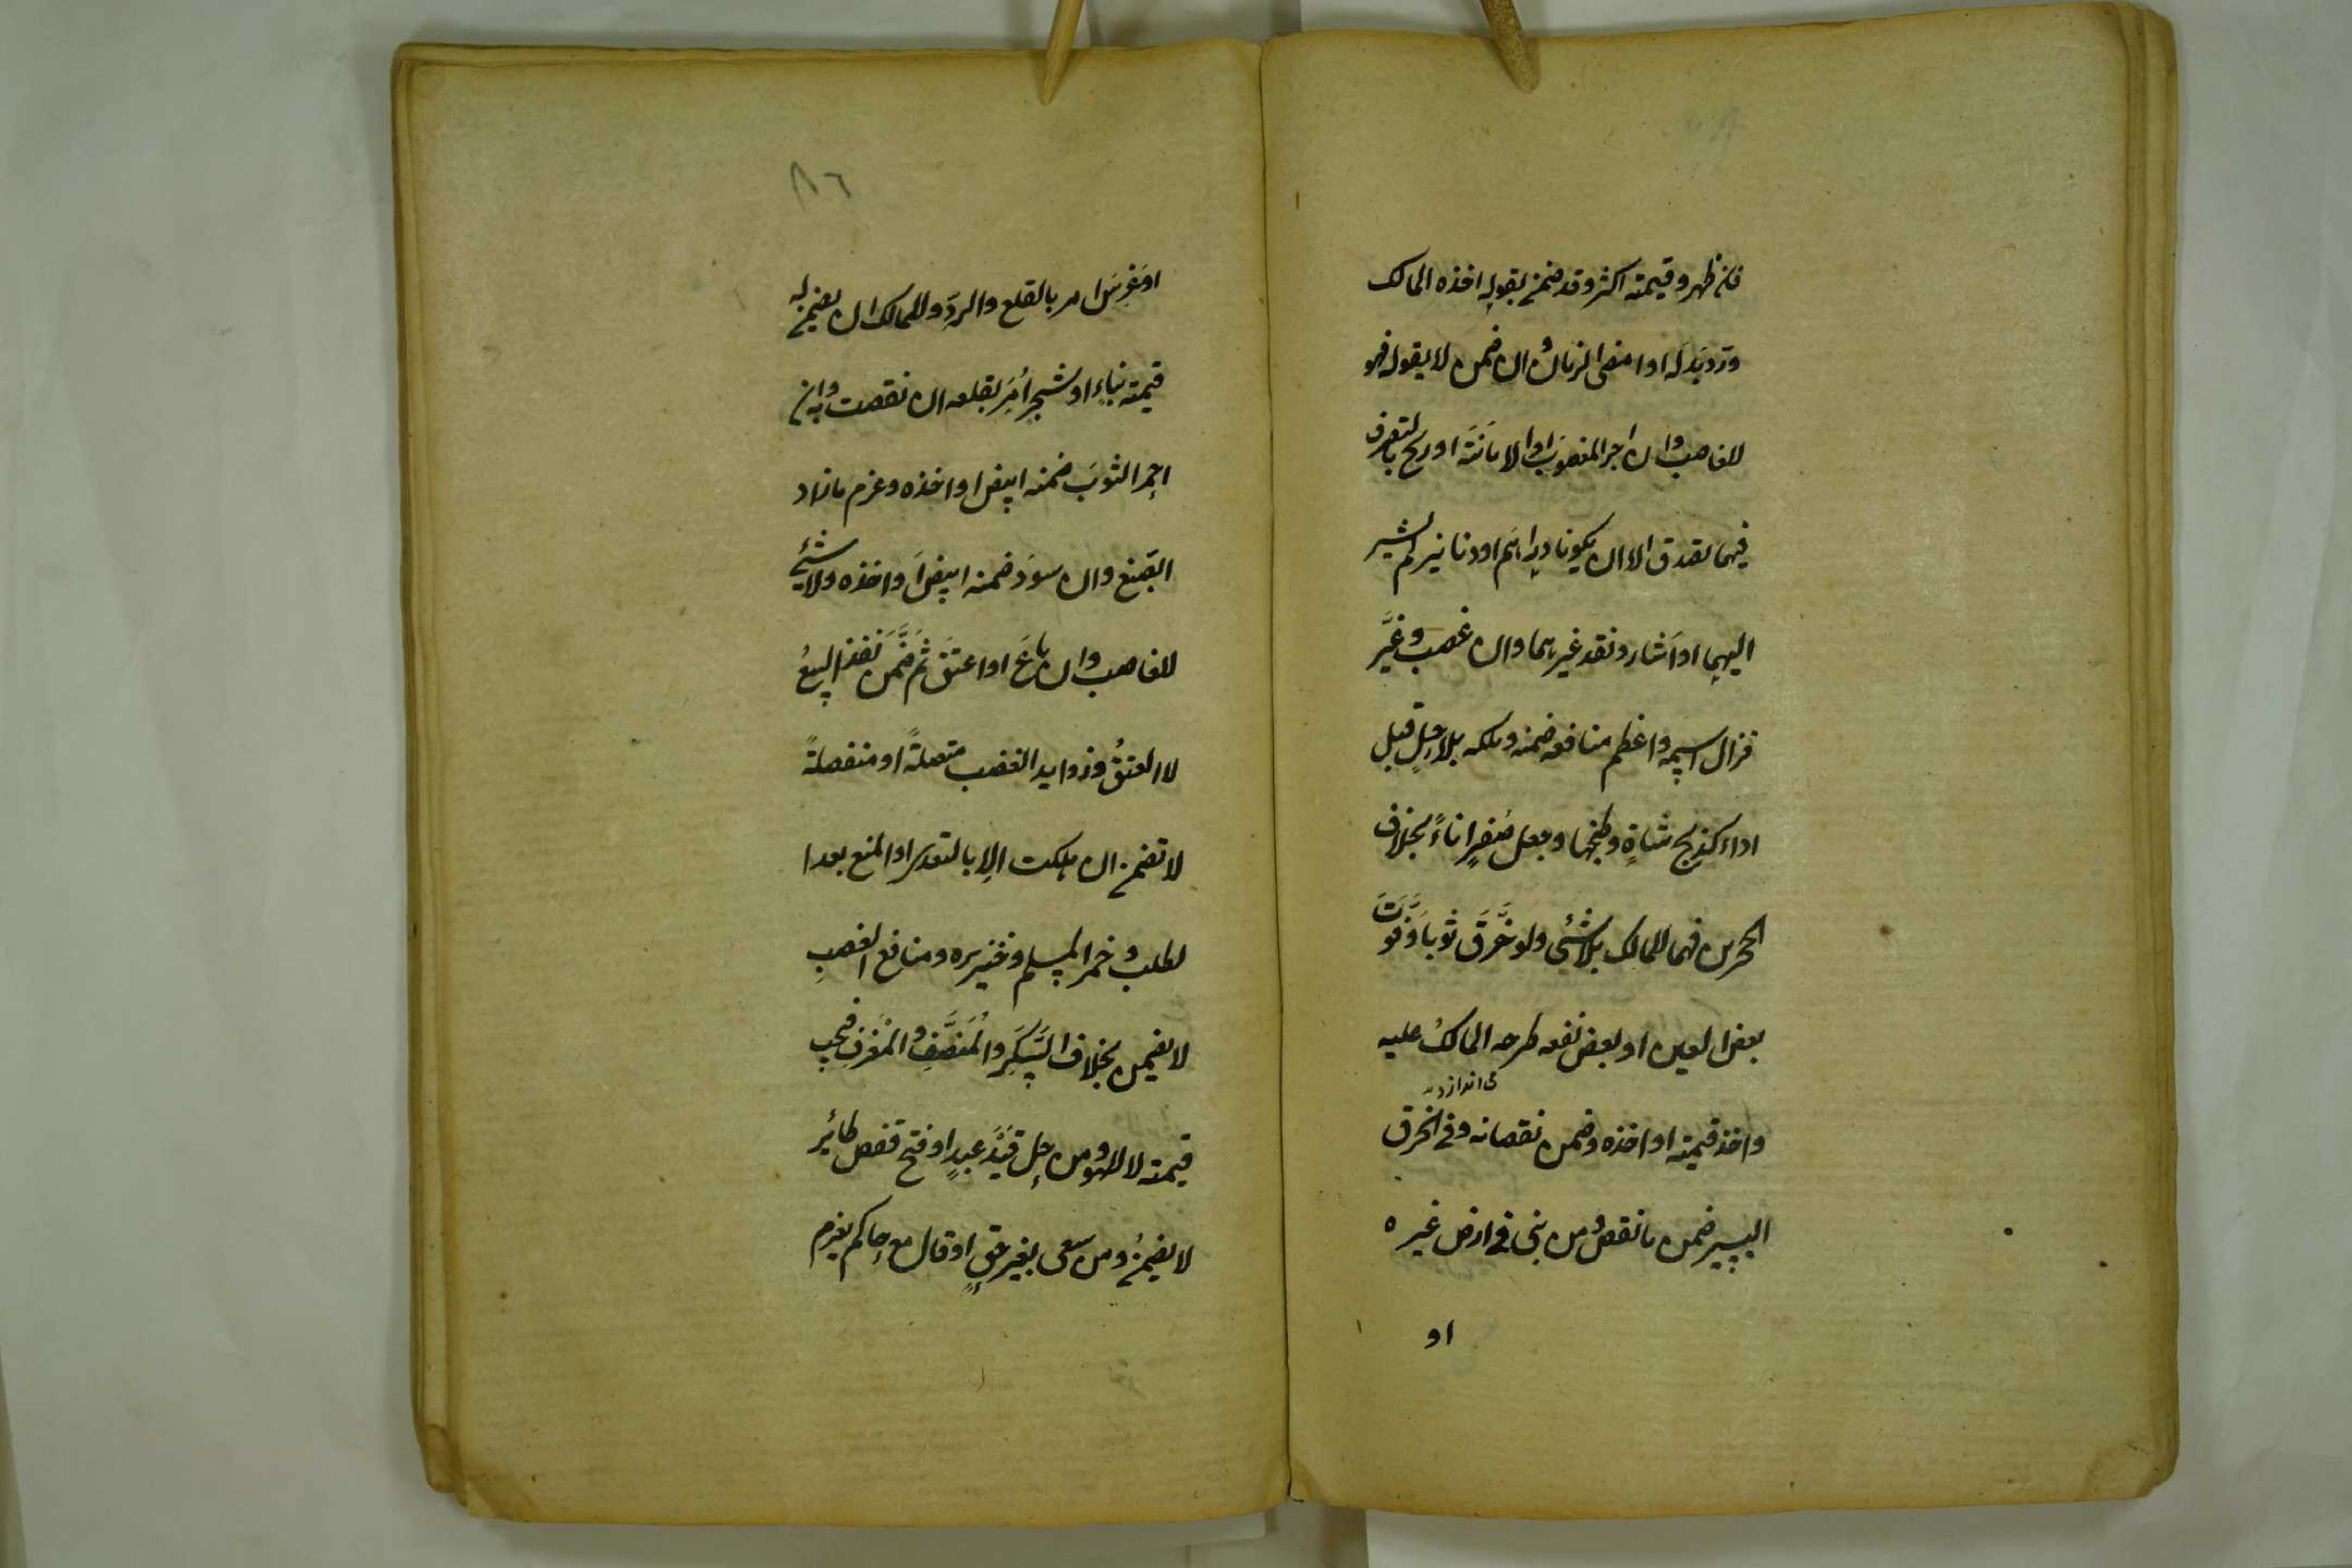 فان ظهر وقيمته اكثر وقد ضمن بقوله اخذه المالك
ورد بدله او امضى الضمان وان ضمن لا بقوله فهو
للغاصب وان اجر المغصوب او الامانة او ربح بالتصرف
فيهما تصدق الا ان يكونا دراهم او دنانير لم يشر
اليهما او اشار ونقد غيرهما وان غصب وغيَّر
فزال اسمه واعظم منافعه ضمنه وملكه بلا حلٍ قبل
اداء كذبح شاةٍ وطبخها وجعل صُفرٍ اناءً بخلاف
الحجرين فهما للمالك بلا شئي ولو خَرَّقَ ثوبا وَفَوَّتَ
بعض العين او بعض نفعه طرحه المالكُ عليه
می اندازد
واخذ قيمته او اخذه وضمن نقصانه وفي الخرق
اليسير ضمن ما نقص ومن بنى في ارض غيره
او
٨٦
او غرس امر بالقلع والردّ وللمالك ان يضمن له
قيمة بناءٍ او شجرٍ اُمِرَ بقلعه ان نقصت به وان
احمر الثوبَ ضمنه ابيض او اخذه وغرم ما زاد
الصبغ وان سوّد ضمنه ابيض او اخذه ولا شئي
للغاصب وان باعَ او اعتق ثم ضُمِّنَ نفذ البيعُ
لا العتقُ وزوايد الغصب متصلةً او منفصلةً
لا تضمن ان هلكت الا بالتعدى او المنع بعد ا
لطلب وخمر المسلم وخنزيره ومنافع الغصبِ
لا يضمن بخلاف السَّكَرِ والمُنَصَّفِ والمعزف فيجب
قيمته لا للهو ومن حل قَيْدَ عبدٍ او فتح قفص طائر
لا يضمن ومن سعى بغير حقٍ او قال مع حاكم يغرم